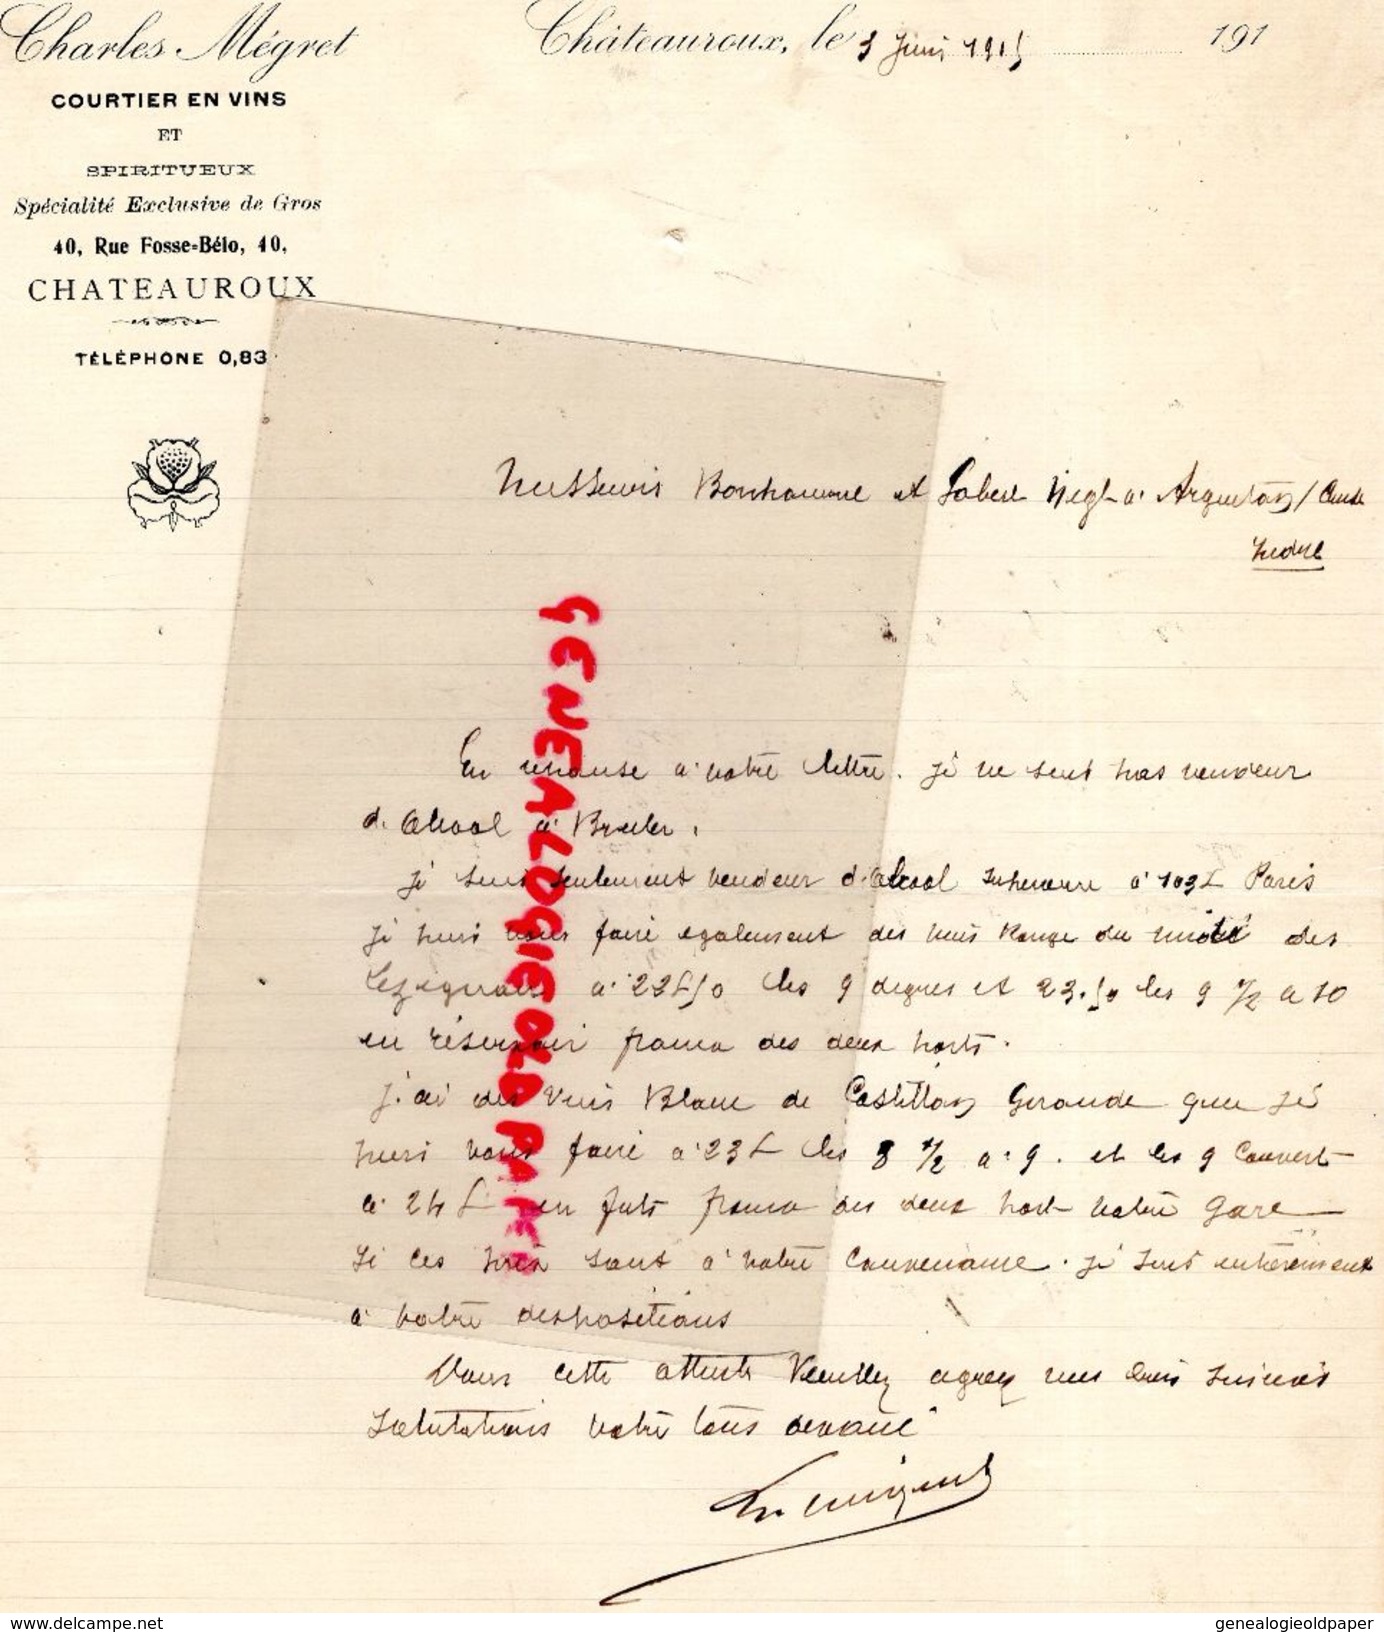 Charles Mégret
COURTIER EN VINS
ET
SPIRITUEUX
Spécialité Exclusive de Gros
40, Rue Fosse-Bélo, 40,
CHATEAUROUX
TÉLÉPHONE 0,83
Châteauroux, le 3 Juin 1915 191
Messieurs Bonhomme et Negt à Argenton / Creuse
Indre
En reponse a votre lettre. je ne suis pas vendeur
d'alcool a Bruler.
je suis seulement vendeur d'alcool Superieure a 103 f Paris
je puis vous faire egalement des vins Rouge du midi des
Lezignan a 22 f 50 les 9 degres et 23.50 les 9 1/2 a 10
en réservoir franco des deux ports.
j'ai des vins Blanc de Castillon Gironde que je
puis vous faire a 23 f les 8 1/2 a 9. et les 9 couvert
a 24 f en futs franco des deux port votre gare
Si ces prix sont a votre convenance. je suis entierement
a votre dispositions
Dans cette attente Veuillez agreez mes Sinceres
Salutations votre tous devoué
GENEALOGIEOLDPAPER
www.delcampe.net
genealogieoldpaper